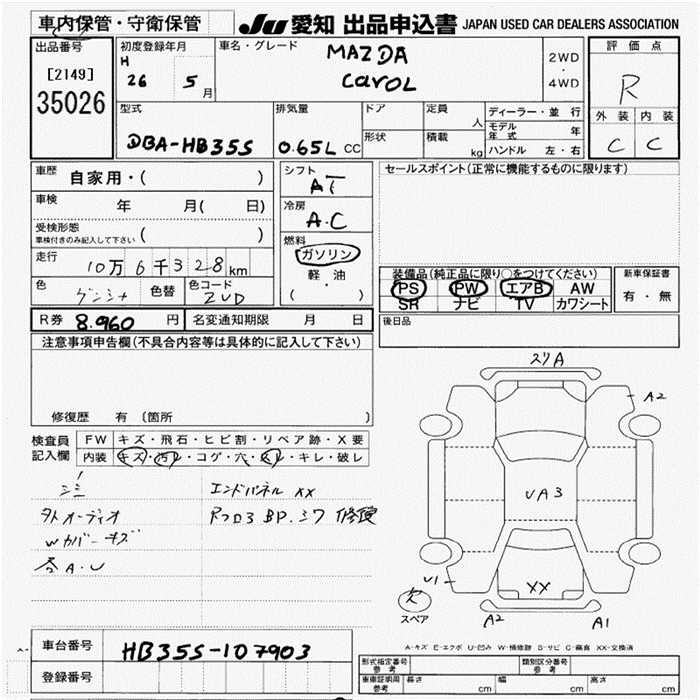 車内保管・守衛保管 JU 愛知 出品申込書 JAPAN USED CAR DEALERS ASSOCIATION
出品番号 初度登録年月 車名・グレード 評価点
[2149] H 26 5月 MAZDA 2WD・4WD R
35026 CAROL 外装 内装
型式 排気量 ドア 定員 人 ディーラー・並行 C C
DBA-HB35S 0.65L CC 形状 積載 kg モデル年式 年
ハンドル 左・右
車歴 自家用・( ) シフト AT セールスポイント(正常に機能するものに限ります)
車検 年 月( 日) 冷房 A.C
受検形態 車検付きのみ記入して下さい ( ) 燃料 ガソリン
走行 10万6千328km 軽油 装備品(純正品に限り○をつけてください) 新車保証書
色 色替 色コード ZUD ( ・ ) PS PW エアB AW 有・無
SR ナビ TV カワシート
R券 8.960円 名変通知期限 月 日 後日品
注意事項申告欄(不具合内容等は具体的に記入して下さい)
修復歴 有 〔箇所
検査員記入欄 FW キズ・飛石・ヒビ割・リペア跡・X要
内装 キズ・汚レ・コゲ・穴・スレ・キレ・破レ
エンドパネル XX
外オーディオ
Wカバーキズ
各A.U
スリA
A2
UA3
U1
XX
スペア
A2 A1
A-キズ E-エクボ U-凹み W-補修跡 S-サビ C-腐食 XX-交換済
車台番号 HB35S-107903
登録番号
型式指定番号 参考 類別区分番号 参考
車庫証明用 参考 長さ cm 幅 cm 高さ cm